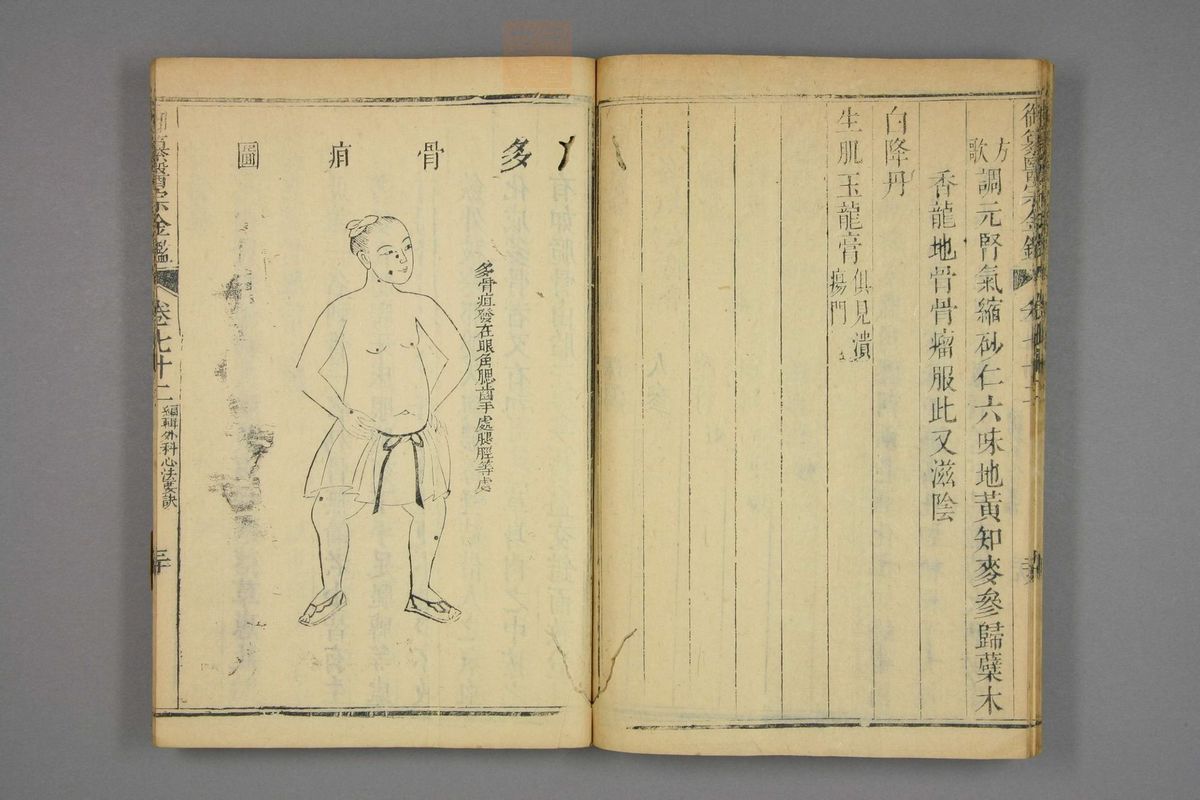 方歌調元腎氣縮砂仁六味地黃知麥參歸蘗木
香龍地骨骨瘤服此又滋陰
白降丹
生肌玉龍膏俱見潰瘍門
多骨疽圖
多骨疽發在眼角腮齒手處腿脛等處
金鑑
卷七十二
編輯外科心法要訣